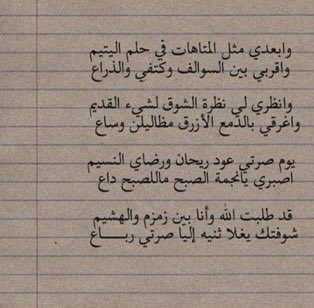 وابعدي مثل المتاهات في حلم اليتيم
واقربي بين السوالف وكتفي والذراع
وانظري لي نظرة الشوق لشيء القديم
واغرقي بالدمع الأزرق مظاليلن وساع
يوم صرتي عود ريحان ورضاي النسيم
اصبري يانجمة الصبح ماللصبح داع
قد طلبت الله وأنا بين زمزم والهشيم
شوفتك يغلا ثنيه إليا صرتي ربـــــاع